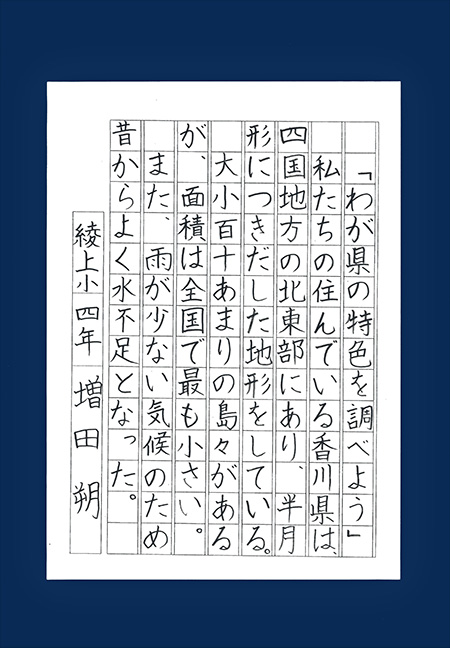 「わが県の特色を調べよう」
私たちの住んでいる香川県は、
四国地方の北東部にあり、半月
形につきだした地形をしている。
大小百十あまりの島々がある
が、面積は全国で最も小さい。
また、雨が少ない気候のため
昔からよく水不足となった。
綾上小 四年 増田 朔